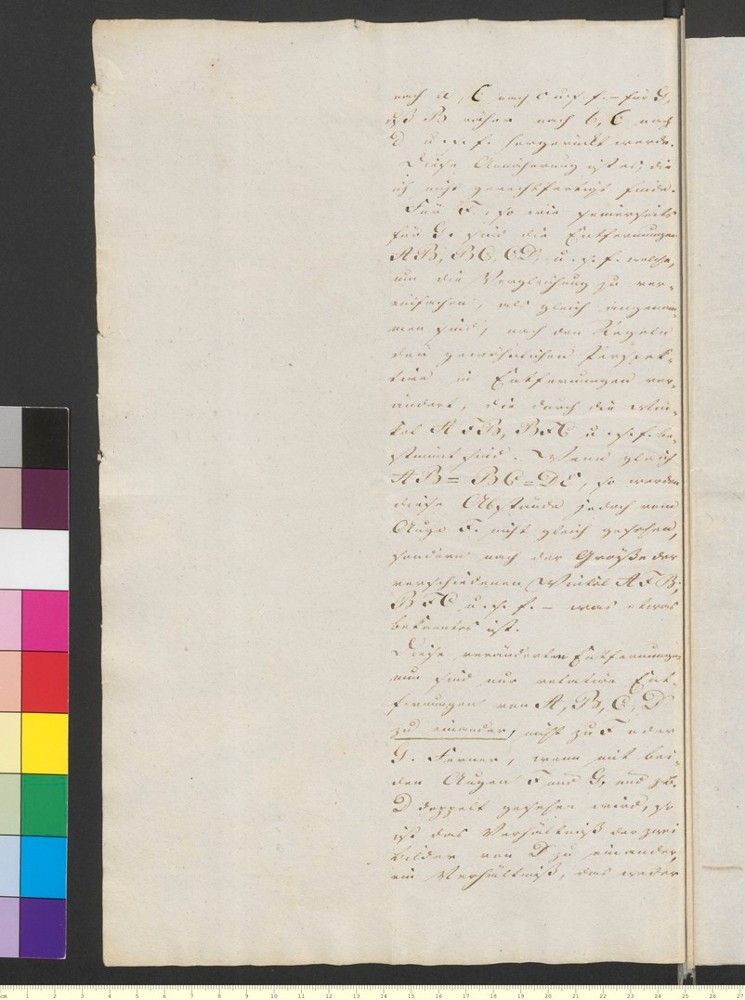 nach a, C nach c u.s.f. – für G,
daß B näher nach b, C nach
d u.s.f. hergerückt werde.
Diese Annäherung ist es, die
ich nicht gerechtfertigt finde.
Für F, so wie seinerseits
für G. sind die Entfernungen
AB, BC, CD, u.s.f. welche,
um die Vergleichung zu ver-
einfachen, als gleich angenom-
men sind, nach den Regeln
der gewöhnlichen Perspek-
tive in Entfernungen ver-
ändert, die durch die Win-
kel AFB, BFC u.s.f. be-
stimmt sind. Wenn gleich
AB = BC = DC, so werden
diese Abstände jedoch vom
Auge F. nicht gleich gesehen,
sondern nach der Größe der
verschiedenen Winkel AFB,
BFC u.s.f. – was etwas
bekanntes ist.
Diese veränderten Entfernungen
nun sind nur relative Ent-
fernungen von A, B, C, D
zu einander, nicht zu F oder
G. Ferner, wenn mit bei-
den Augen F und G, und zB.
D doppelt gesehen wird, so
ist das Verhältniß der zwei
Bilder von D zu einander,
ein Verhältniß, das weder